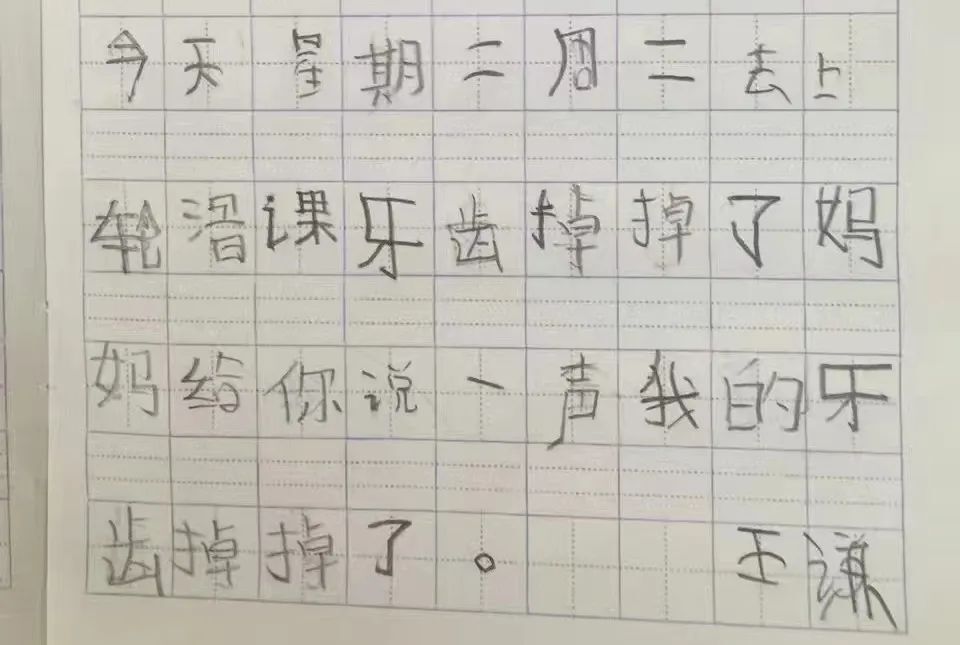 今天星期二周二去上
轮滑课牙齿掉掉了妈
妈给你说一声我的牙
齿掉掉了。 王谦